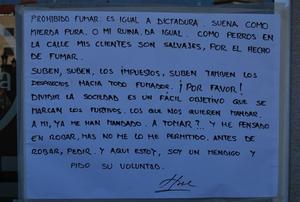 PROHIBIDO FUMAR. ES IGUAL A DICTADURA. SUENA COMO
MIERDA PURA. O MI RUINA, DA IGUAL. COMO PERROS EN
LA CALLE MIS CLIENTES SON SALVAJES, POR EL HECHO
DE FUMAR.
SUBEN, SUBEN, LOS IMPUESTOS, SUBEN TAMBIEN LOS
DESPRECIOS. HACIA TODO FUMADOR. ¡POR FAVOR!
DIVIDIR LA SOCIEDAD ES UN FÁCIL OBJETIVO QUE SE
MARCAN LOS LOS QUE NOS QUIEREN MANDAR.
A MI, YA ME HAN MANDADO. A TOMAR?... Y HE PENSADO
EN ROBAR, MAS NO ME LO HE PERMITIDO. ANTES DE
ROBAR, PEDIR. Y AQUI ESTOY, SOY UN MENDIGO Y
PIDO SU VOLUNTAD.